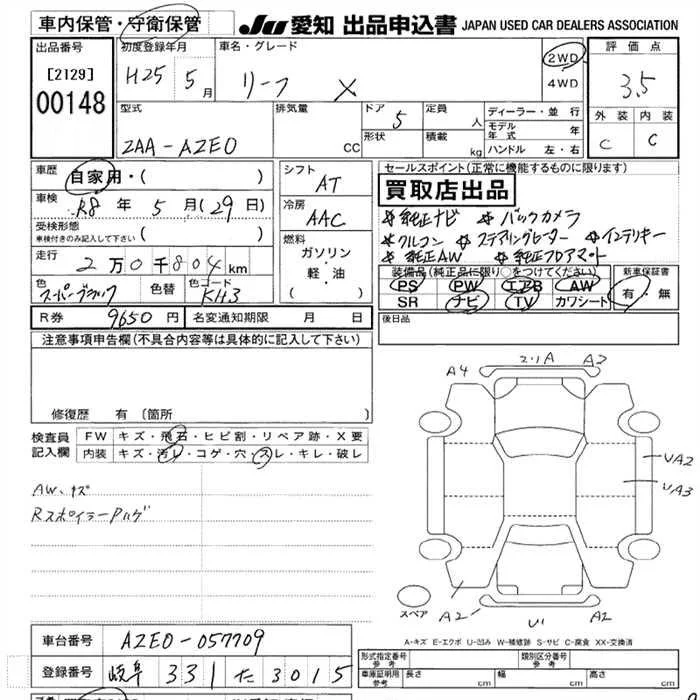 車内保管・守衛保管 JU 愛知 出品申込書 JAPAN USED CAR DEALERS ASSOCIATION
出品番号 初度登録年月 車名・グレード 2WD 評価点
[2129] H25 5月 リーフ X 4WD 3.5
00148
型式 排気量 ドア 5 定員 人 ディーラー・並行 外装 内装
ZAA-AZE0 CC 形状 積載 kg モデル年式 年 C C
ハンドル 左・右
車歴 自家用・( ) シフト AT セールスポイント(正常に機能するものに限ります)
車検 R8年 5月(29日) 冷房 AAC 買取店出品
受検形態 ( ) ☆純正ナビ ☆バックカメラ
車検付きのみ記入して下さい 燃料 ☆クルコン ☆ステアリングヒーター ☆インテリキー
走行 2万0千804km ガソリン ☆純正AW ☆純正フロアマット
色 スーパーブラック 色替 色コード KH3 軽・油 ( ) 装備品(純正品に限り○をつけてください) 新車保証書
PS PW エアB AW 有・無
SR ナビ TV カワシート
R券 9650円 名変通知期限 月 日 後日品
注意事項申告欄(不具合内容等は具体的に記入して下さい)
修復歴 有 〔箇所
検査員 FW キズ・飛石・ヒビ割・リペア跡・X要
記入欄 内装 キズ・汚レ・コゲ・穴・スレ・キレ・破レ
A4 A2
UA2
UA3
AW、キズ
Rスポイラーハゲ
スペア A2 U1 A2
A-キズ E-エクボ U-凹み W-補修跡 S-サビ C-腐食 XX-交換済
車台番号 AZE0-057709
形式指定番号 参考 類別区分番号 参考
登録番号 岐阜 331 た 3015
車庫証明用 参考 長さ cm 幅 cm 高さ cm